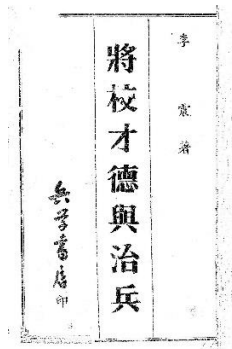 李震著
將校才德與治兵
兵学書店印